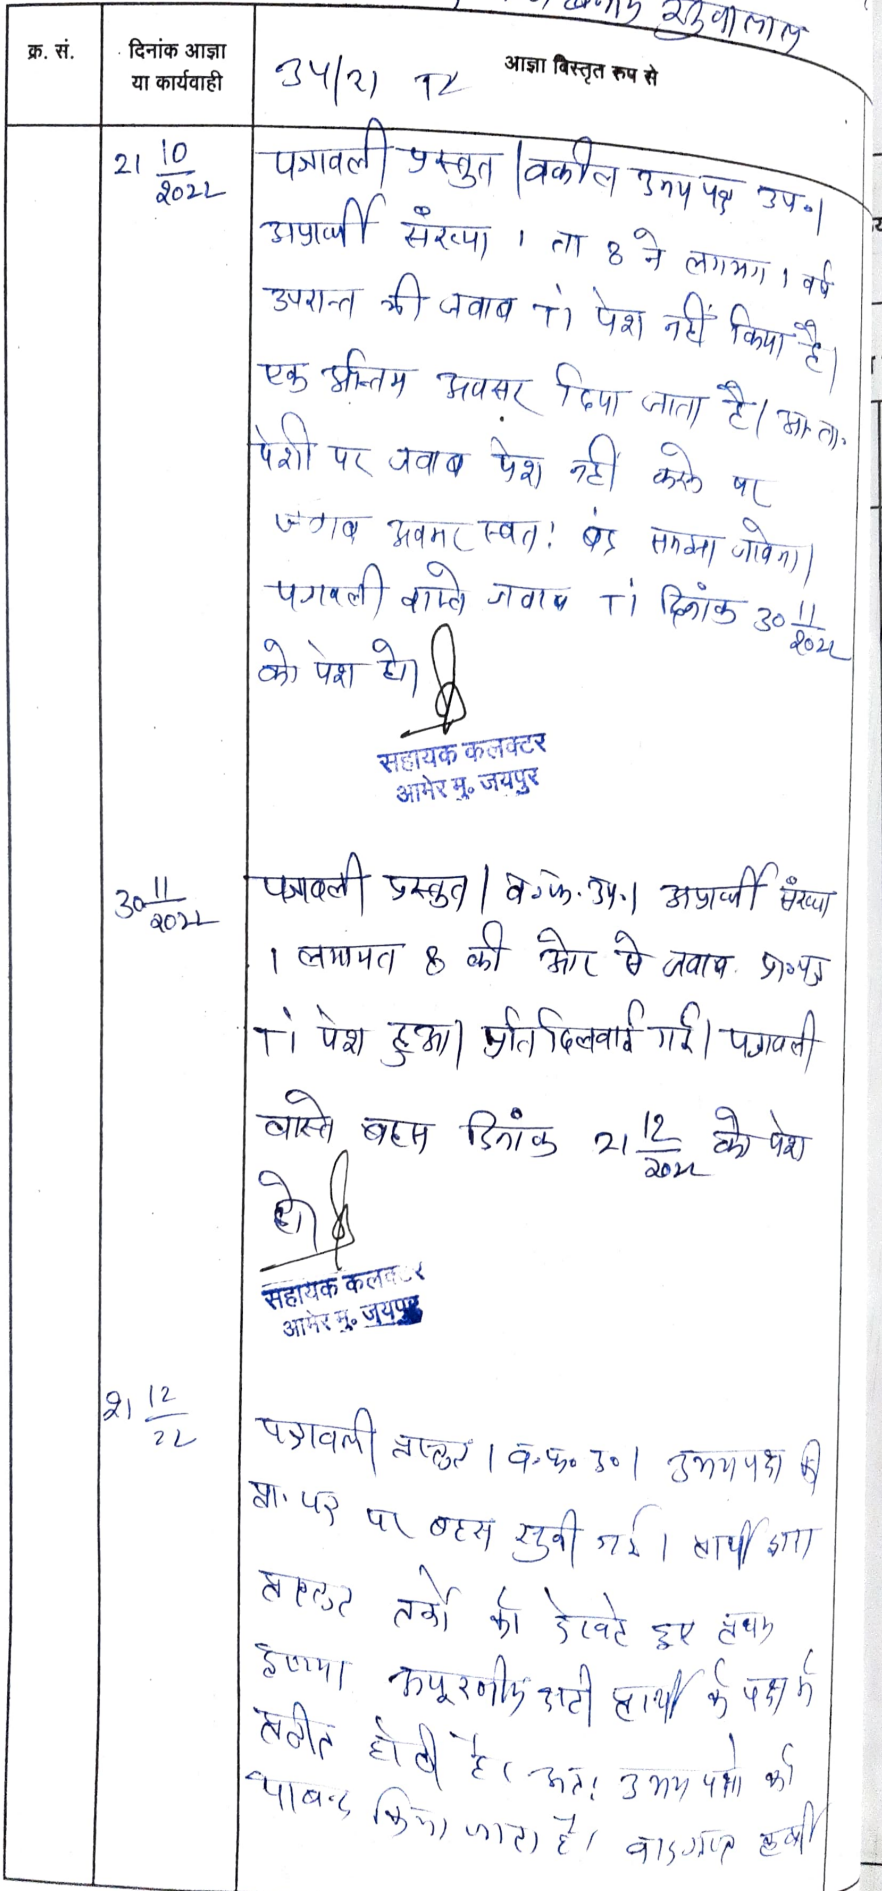 बनाम रघुवालाल
क्र. सं.
दिनांक आज्ञा
या कार्यवाही
आज्ञा विस्तृत रुप से
34/21 TI
21 10/2022
पत्रावली प्रस्तुत | वकील उभय पक्ष उप०|
अप्रार्थी संख्या 1 ता 8 ने लगभग 1 वर्ष
उपरान्त भी जवाब TI पेश नहीं किया है|
एक अन्तिम अवसर दिया जाता है| आ० ता०
पेशी पर जवाब पेश नहीं करने पर
जवाब अवसर स्वत: बंद समझा जावेगा|
पत्रावली वास्ते जवाब TI दिनांक 30 11/2022
को पेश हो|
सहायक कलक्टर
आमेर मु० जयपुर
30 11/2022
पत्रावली प्रस्तुत | व०फ० उप०| अप्रार्थी संख्या
1 लगायत 8 की ओर से जवाब प्रा०पत्र
TI पेश हुआ| प्रति दिलवाई गई| पत्रावली
वास्ते बहस दिनांक 21 12/2022 को पेश
हो|
सहायक कलक्टर
आमेर मु० जयपुर
21 12/22
पत्रावली प्रस्तुत | व०फ० उ०| उभयपक्ष की
प्रा० पत्र पर बहस सुनी गई | प्रार्थी द्वारा
प्रस्तुत तर्को को देखते हुए प्रथम
दृष्टया अपूरणीय क्षती प्रार्थी के पक्ष में
प्रतीत होती है| अत: उभय पक्षो को
पाबन्द किया जाता है| वादग्रस्त